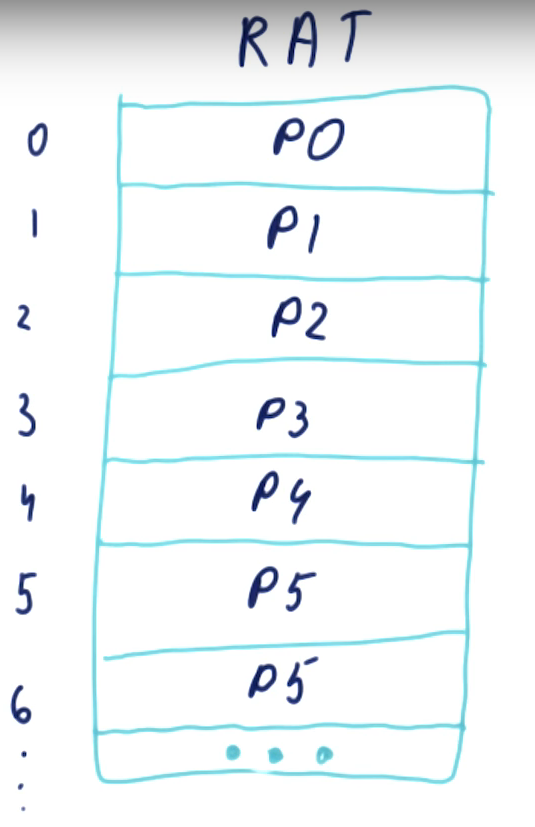 RAT
0 P0
1 P1
2 P2
3 P3
4 P4
5 P5
6 P5